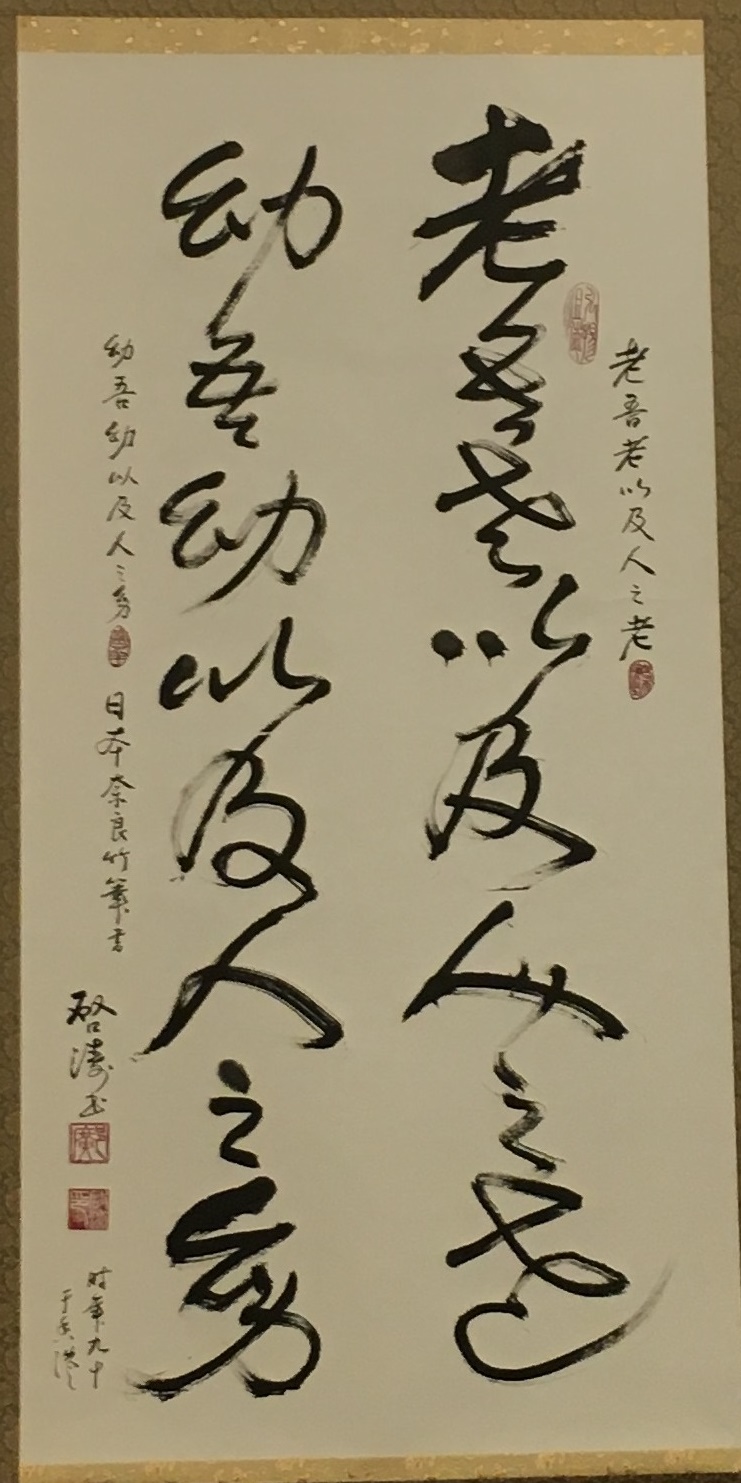 老吾老以及人之老
老吾老以及人之老
幼吾幼以及人之幼
幼吾幼以及人之幼
日本奈良竹筆書
啓濤書
时年九十
于香港